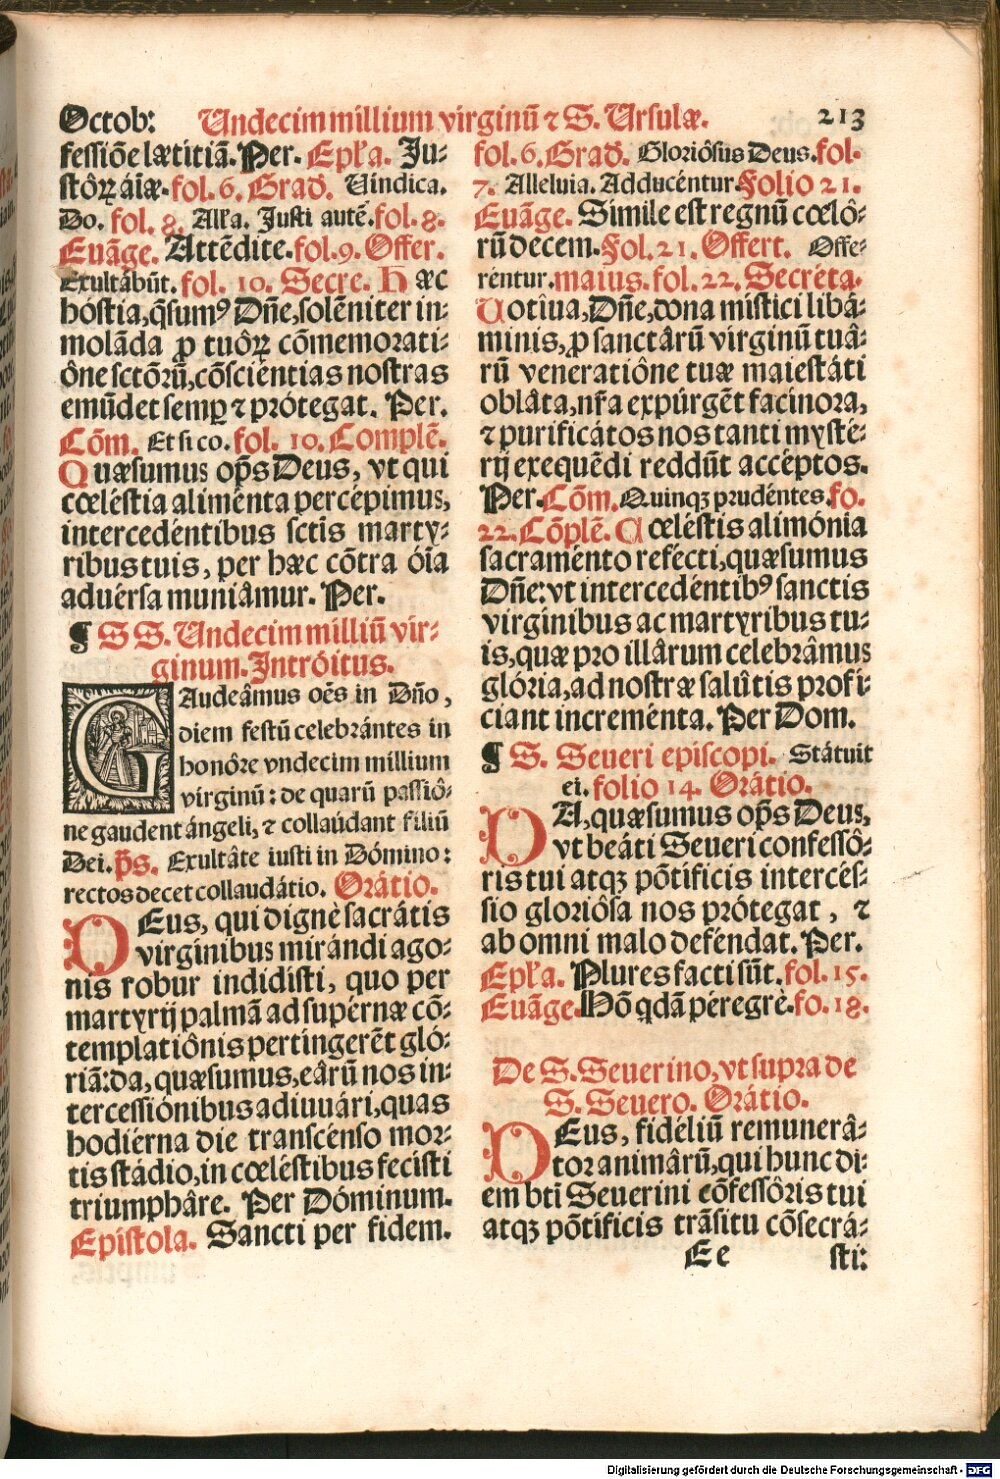 Octob: Undecim millium virginũ ⁊ S. Ursulæ. 213
fessiõe lætitiã. Per. Epl'a. Ju-
stôrꝝ áiæ. fol. 6. Grad. Vindica.
Do. fol. 8. All'a. Justi autẽ. fol. 8.
Euãge. Attẽdite. fol. 9. Offer.
Exultâbũt. fol. 10. Secre. Hæc
hóstia, q̃sumꝰ Dñe, solẽniter in-
molãda ꝓ tuôrꝝ cõmemorati-
ône sctõrũ, cõsciéntias nostras
emũdet semꝑ ⁊ prótegat. Per.
Cõm. Et si co. fol. 10. Complẽ.
Quæsumus op̃s Deus, vt qui
cœléstia aliménta percépimus,
intercedéntibus sctis̃ marty-
ribus tuis, per hæc cõtra óĩa
aduérsa muniâmur. Per.
¶ SS. Undecim milliũ vir-
ginum. Intróitus.
GAudeâmus oẽs in Dño,
diem festũ celebrántes in
honôre vndecim millium
virginũ: de quarũ passiô-
ne gaudent ángeli, ⁊ collaúdant filiũ
Dei. p̃s. Exultâte iusti in Dómino:
rectos decet collaudátio. Orátio.
DEus, qui dignè sacrátis
virginibus mirándi ago-
nis robur indidísti, quo per
martyrij palmã ad supérnæ cõ-
templatiônis pertingerẽt gló-
riã: da, quæsumus, eârũ nos in-
tercessiónibus adiuuári, quas
hodiérna die transcénso mor-
tis stádio, in cœléstibus fecísti
triumphâre. Per Dóminum.
Epistola. Sancti per fidem.
fol. 6. Grad. Gloriôsus Deus. fol.
7. Alleluia. Adducéntur. Folio 21.
Euãge. Simile est regnũ cœlô-
rũ decem. Fol. 21. Offert. Offe-
réntur. maius. fol. 22. Secréta.
Uotîua, Dñe, dona místici libâ-
minis, ꝓ sanctârũ virginũ tuâ-
rũ veneratiône tuæ maiestáti
oblâta, nr̃a expúrgẽt facinora,
⁊ purificátos nos tanti mysté-
rij exequẽdi reddũt accéptos.
Per. Cõm. Quinqꝫ prudéntes. fo.
22. Cõplẽ. Cœléstis alimónia
sacraménto refécti, quæsumus
Dñe: vt intercedéntibꝰ sanctis
virginibus ac martyribus tu-
is, quæ pro illârum celebrâmus
glória, ad nostræ salûtis profí-
ciant increménta. Per Dom.
¶ S. Seueri episcopi. Státuit
ei. folio 14. Orátio.
DA, quæsumus op̃s Deus,
vt beáti Seueri confessô-
ris tui atqꝫ põtíficis intercés-
sio gloriôsa nos prótegat, ⁊
ab omni malo deféndat. Per.
Epl'a. Plures facti sũt. fol. 15.
Euãge. Hõ qdã péregrè. fo. 18.
De S. Seuerino, vt supra de
S. Seuero. Orátio.
DEus, fidéliũ remunerâ-
tor animârũ, qui hunc di-
em bti Seuerini cõfessôris tui
atqꝫ põtíficis trãsitu cõsecrá-
Ee sti:
Digitalisierung gefördert durch die Deutsche Forschungsgemeinschaft - DFG